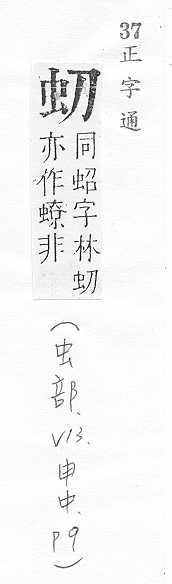 37正字通
虭
同蛁字林虭
亦作蟟非
(虫部. V13. 申中. P9)